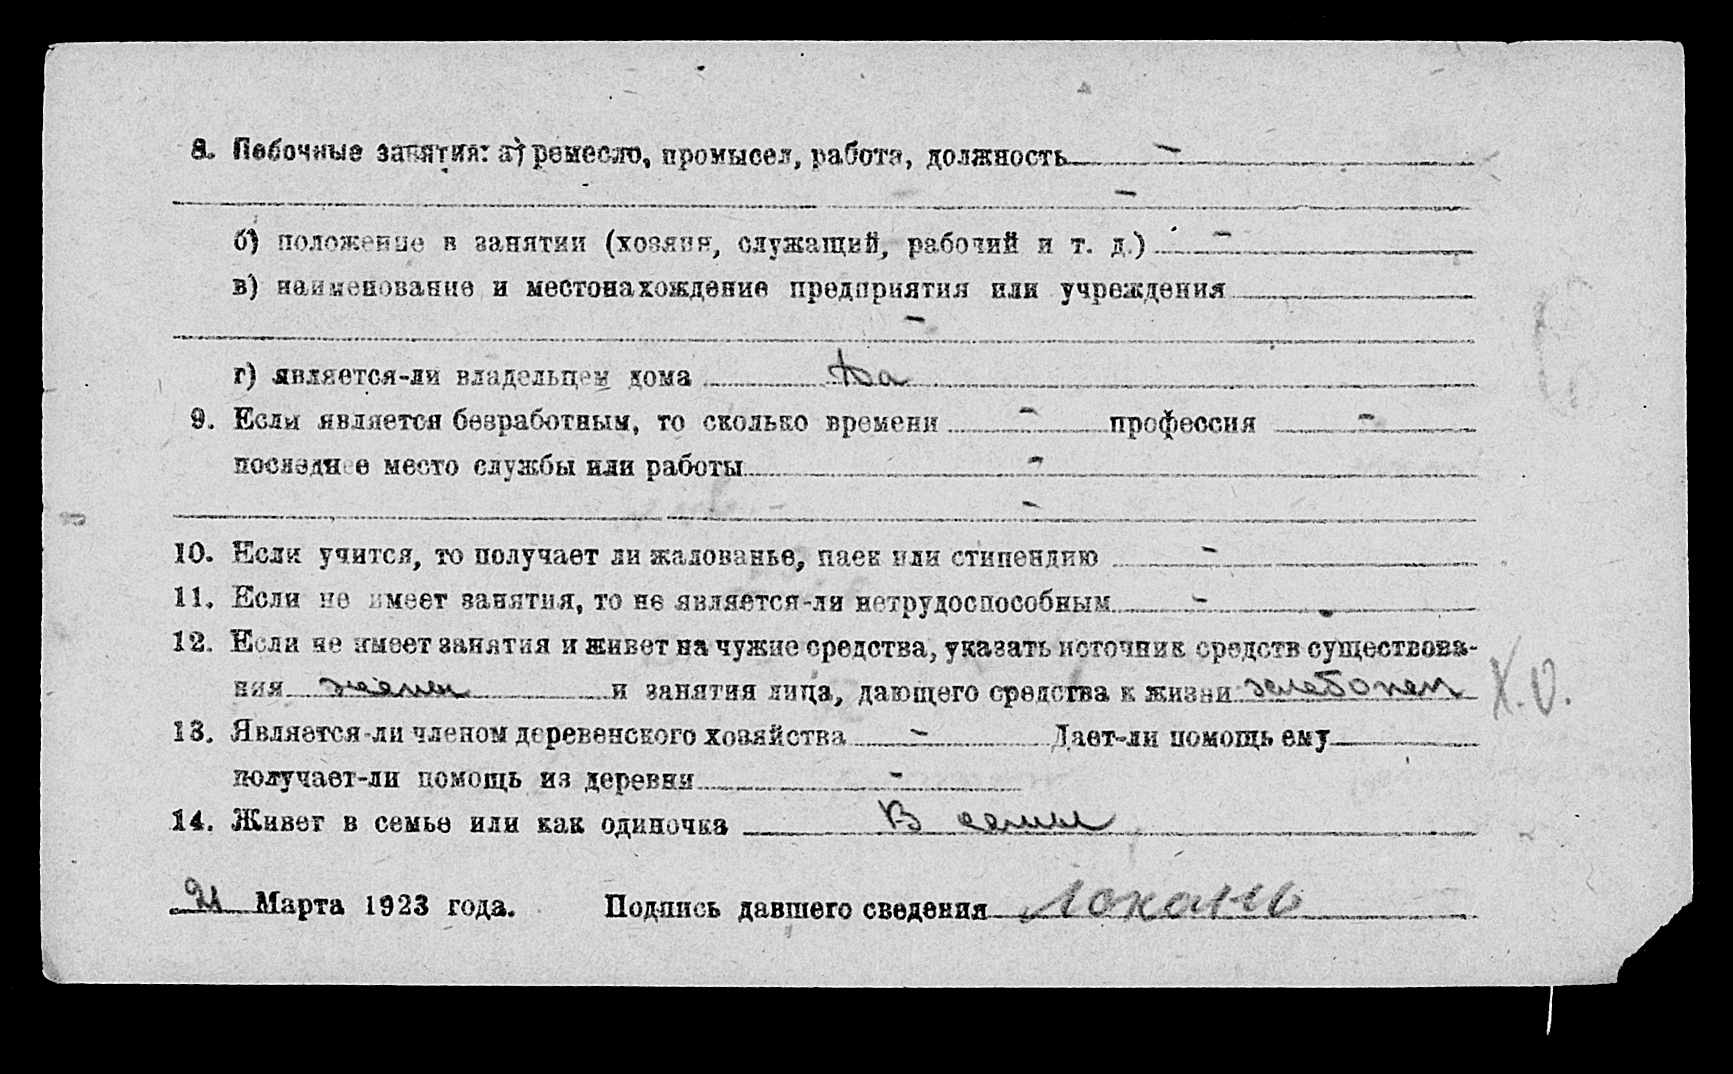 8. Побочные занятия: а) ремесло, промысел, работа, должность –
–
б) положение в занятии (хозяин, служащий, рабочий и т. д.) –
в) наименование и местонахождение предприятия или учреждения
–
г) является-ли владельцем дома Да
9. Если является безработным, то сколько времени – профессия –
последнее место службы или работы –
–
10. Если учится, то получает ли жалованье, паек или стипендию –
11. Если не имеет занятия, то не является-ли нетрудоспособным –
12. Если не имеет занятия и живет на чужие средства, указать источник средств существова-
ния и занятия лица, дающего средства к жизни хлебопек Х.О.
13. Является-ли членом деревенского хозяйства – Дает-ли помощь ему
получает-ли помощь из деревни –
14. Живет в семье или как одиночка В семьи
21 Марта 1923 года. Подпись давшего сведения